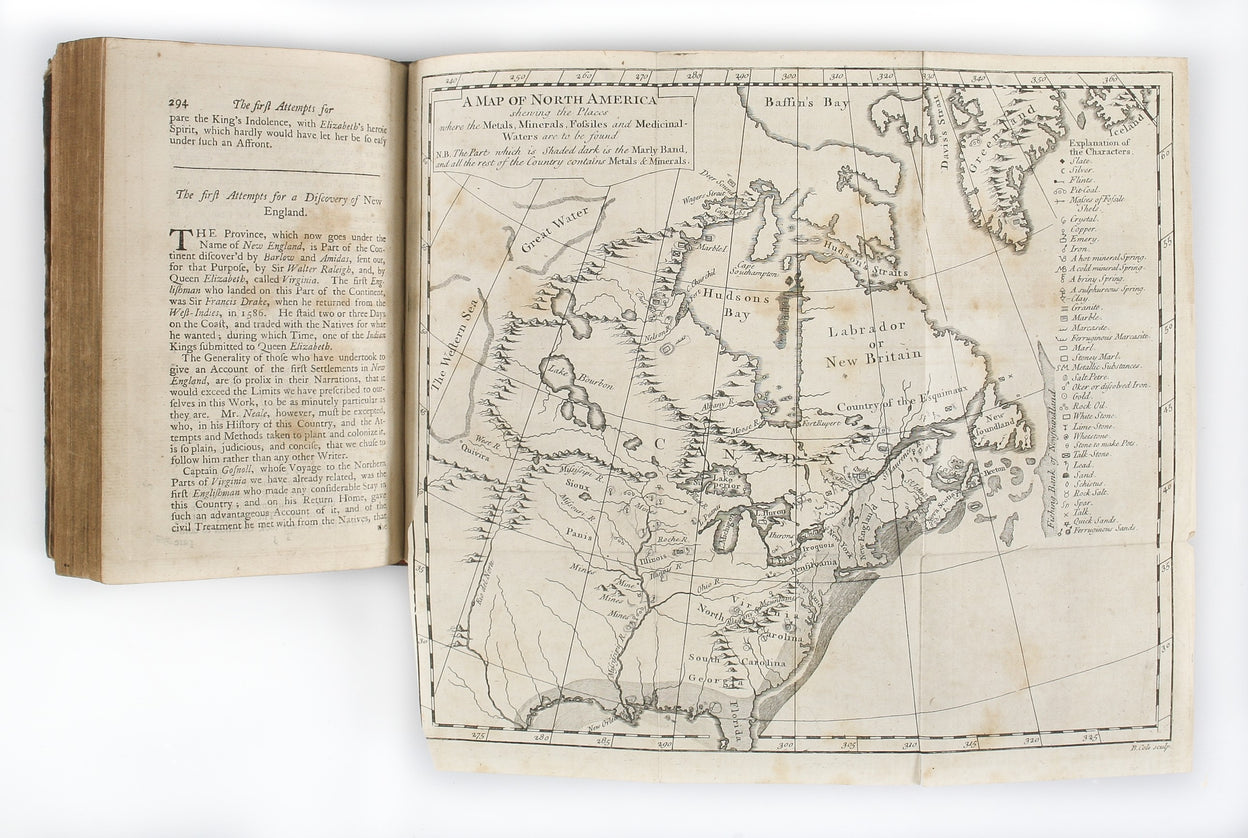 294 The first Attempts for
pare the King's Indolence, with Elizabeth's heroic
Spirit, which hardly would have let her be so easy
under such an Affront.
The first Attempts for a Discovery of New
England.
THE Province, which now goes under the
Name of New England, is Part of the Con-
tinent discover'd by Barlow and Amidas, sent out,
for that Purpose, by Sir Walter Raleigh, and, by
Queen Elizabeth, called Virginia. The first Eng-
lishman who landed on this Part of the Continent,
was Sir Francis Drake, when he returned from the
West-Indies, in 1586. He staid two or three Days
on the Coast, and traded with the Natives for what
he wanted; during which Time, one of the Indian
Kings submitted to Queen Elizabeth.
The Generality of those who have undertook to
give an Account of the first Settlements in New
England, are so prolix in their Narrations, that it
would exceed the Limits we have prescribed to our-
selves in this Work, to be as minutely particular as
they are. Mr. Neale, however, must be excepted,
who, in his History of this Country, and the At-
tempts and Methods taken to plant and colonize it,
is so plain, judicious, and concise, that we chuse to
follow him rather than any other Writer.
Captain Gosnoll, whose Voyage to the Northern
Parts of Virginia we have already related, was the
first Englishman who made any considerable Stay in
this Country; and on his Return Home, gave
such an advantageous Account of it, and of the
civil Treatment he met with from the Natives, that
240 250 260 270 280 290 300 310 320 330 340 350 360
A MAP OF NORTH AMERICA
shewing the Places
where the Metals, Minerals, Fossiles and Medicinal-
Waters are to be found
N.B. The Part which is Shaded dark is the Marly Band,
and all the rest of the Country contains Metals & Minerals.
Baffin's Bay
Davis's Streights
Greenland
Iceland
Great Water
The Western Sea
Wagers Strait
Marble I.
Cape
Southampton
Churchil
Hudsons
Bay
Hudsons Straits
Nelson R.
Labrador
or
New Britain
Country of the Esquimaux
Lake Bourbon
Albany R.
Moose R.
Fort Rupert
CANADA
New
Foundland
Fishing Bank of Newfoundland
West R.
Quivira
Missisipi R.
Sioux
Missouri R.
Lake
Superior
L. Huron
Hurons
Iroquois
Breton
New England
New York
Pensilvania
Panis
Roche R.
Illinois
Mines
Mine
Mines
Mines
Ohio R.
Virginia
Mountains
North
Carolina
South Carolina
Georgia
Florida
Missisipi R.
60
55
50
45
40
35
30
35
30
275 280 285 290 300 305 310 315 320 325
Explanation of
the Characters.
Slate.
Silver.
Flints.
Pit Coal.
Masses of Fossile
Shels.
Crystal.
Copper.
Emery.
Iron.
A hot mineral Spring.
A cold mineral Spring.
A briny Spring.
A sulphureous Spring.
Clay.
Granite.
Marble.
Marcasite.
Ferruginous Marcasite.
Marl.
Stoney Marl.
Metallic Substances.
Salt Petre.
Oker or dissolved Iron.
Gold.
Rock Oil.
White Stone.
Lime Stone.
Whetstone.
Stone to make Pots.
Talk Stone.
Lead.
Sand.
Schistus.
Rock Salt.
Spar.
Talk.
Quick Sands.
Ferruginous Sands.
B. Cole sculp.